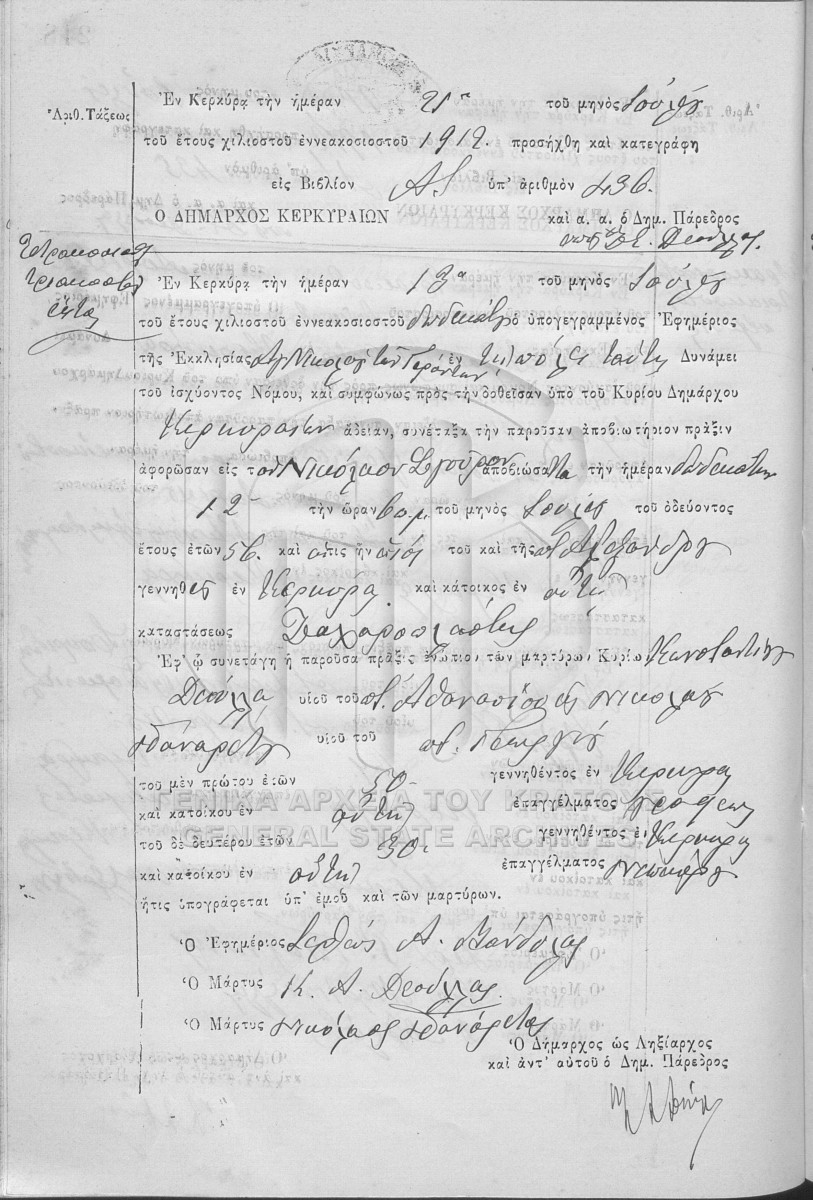 Ἀριθ. Τάξεως
Ἐν Κερκύρᾳ τὴν ἡμέραν 21ῃ τοῦ μηνὸς Ἰουλίου
τοῦ ἔτους χιλιοστοῦ ἐννεακοσιοστοῦ 1912. προσήχθη καὶ κατεγράφη
εἰς Βιβλίον ὑπ' ἀριθμὸν 436.
Ο ΔΗΜΑΡΧΟΣ ΚΕΡΚΥΡΑΙΩΝ καὶ α. α. ὁ Δημ. Πάρεδρος
Τετρακόσια
τριάκοντα
Ἐν Κερκύρᾳ τὴν ἡμέραν 13ῃ τοῦ μηνὸς Ἰουλίου
τοῦ ἔτους χιλιοστοῦ ἐννεακοσιοστοῦ δωδεκάτου ὁ ὑπογεγραμμένος Ἐφημέριος
τῆς Ἐκκλησίας Ἁγ. Νικολάου τῶν Γερόντων ἐν τῇ πόλει ταύτῃ Δυνάμει
τοῦ ἰσχύοντος Νόμου, καὶ συμφώνως πρὸς τὴν δοθεῖσαν ὑπὸ τοῦ Κυρίου Δημάρχου
Κερκυραίων ἄδειαν, συνέταξα τὴν παροῦσαν ἀποβιωτήριον πρᾶξιν
ἀφορῶσαν εἰς τὸν Νικόλαον Σγοῦρον ἀποβιώσαντα τὴν ἡμέραν δωδεκάτην
12 τὴν ὥραν τοῦ μηνὸς Ἰουλίου τοῦ ὁδεύοντος
ἔτους ἐτῶν 56. καὶ ὅστις ἦν υἱὸς τοῦ καὶ τῆς ποτ. Ἀλεξάνδρου
γεννηθεὶς ἐν Κερκύρᾳ καὶ κάτοικος ἐν αὐτῇ
καταστάσεως Ζαχαροπλάστης
Ἐφ' ᾧ συνετάγη ἡ παροῦσα πρᾶξις ἐνώπιον τῶν μαρτύρων Κυρίων Κωνσταντίνου
υἱοῦ τοῦ ποτ. Ἀθανασίου καὶ Νικολάου
υἱοῦ τοῦ ποτ. Γεωργίου
τοῦ μὲν πρώτου ἐτῶν 50 γεννηθέντος ἐν Κερκύρᾳ
καὶ κατοίκου ἐν αὐτῇ ἐπαγγέλματος γραφέως
τοῦ δὲ δευτέρου ἐτῶν 30 γεννηθέντος ἐν Κερκύρᾳ
καὶ κατοίκου ἐν αὐτῇ ἐπαγγέλματος νεωκόρου
ἥτις ὑπογράφεται ὑπ' ἐμοῦ καὶ τῶν μαρτύρων.
Ὁ Ἐφημέριος Ἱερεὺς Α.
Ὁ Μάρτυς Κ. Α.
Ὁ Μάρτυς Νικόλαος
Ὁ Δήμαρχος ὡς Ληξίαρχος
καὶ ἀντ' αὐτοῦ ὁ Δημ. Πάρεδρος
ΓΕΝΙΚΑ ΑΡΧΕΙΑ ΤΟΥ ΚΡΑΤΟΥΣ
GENERAL STATE ARCHIVES